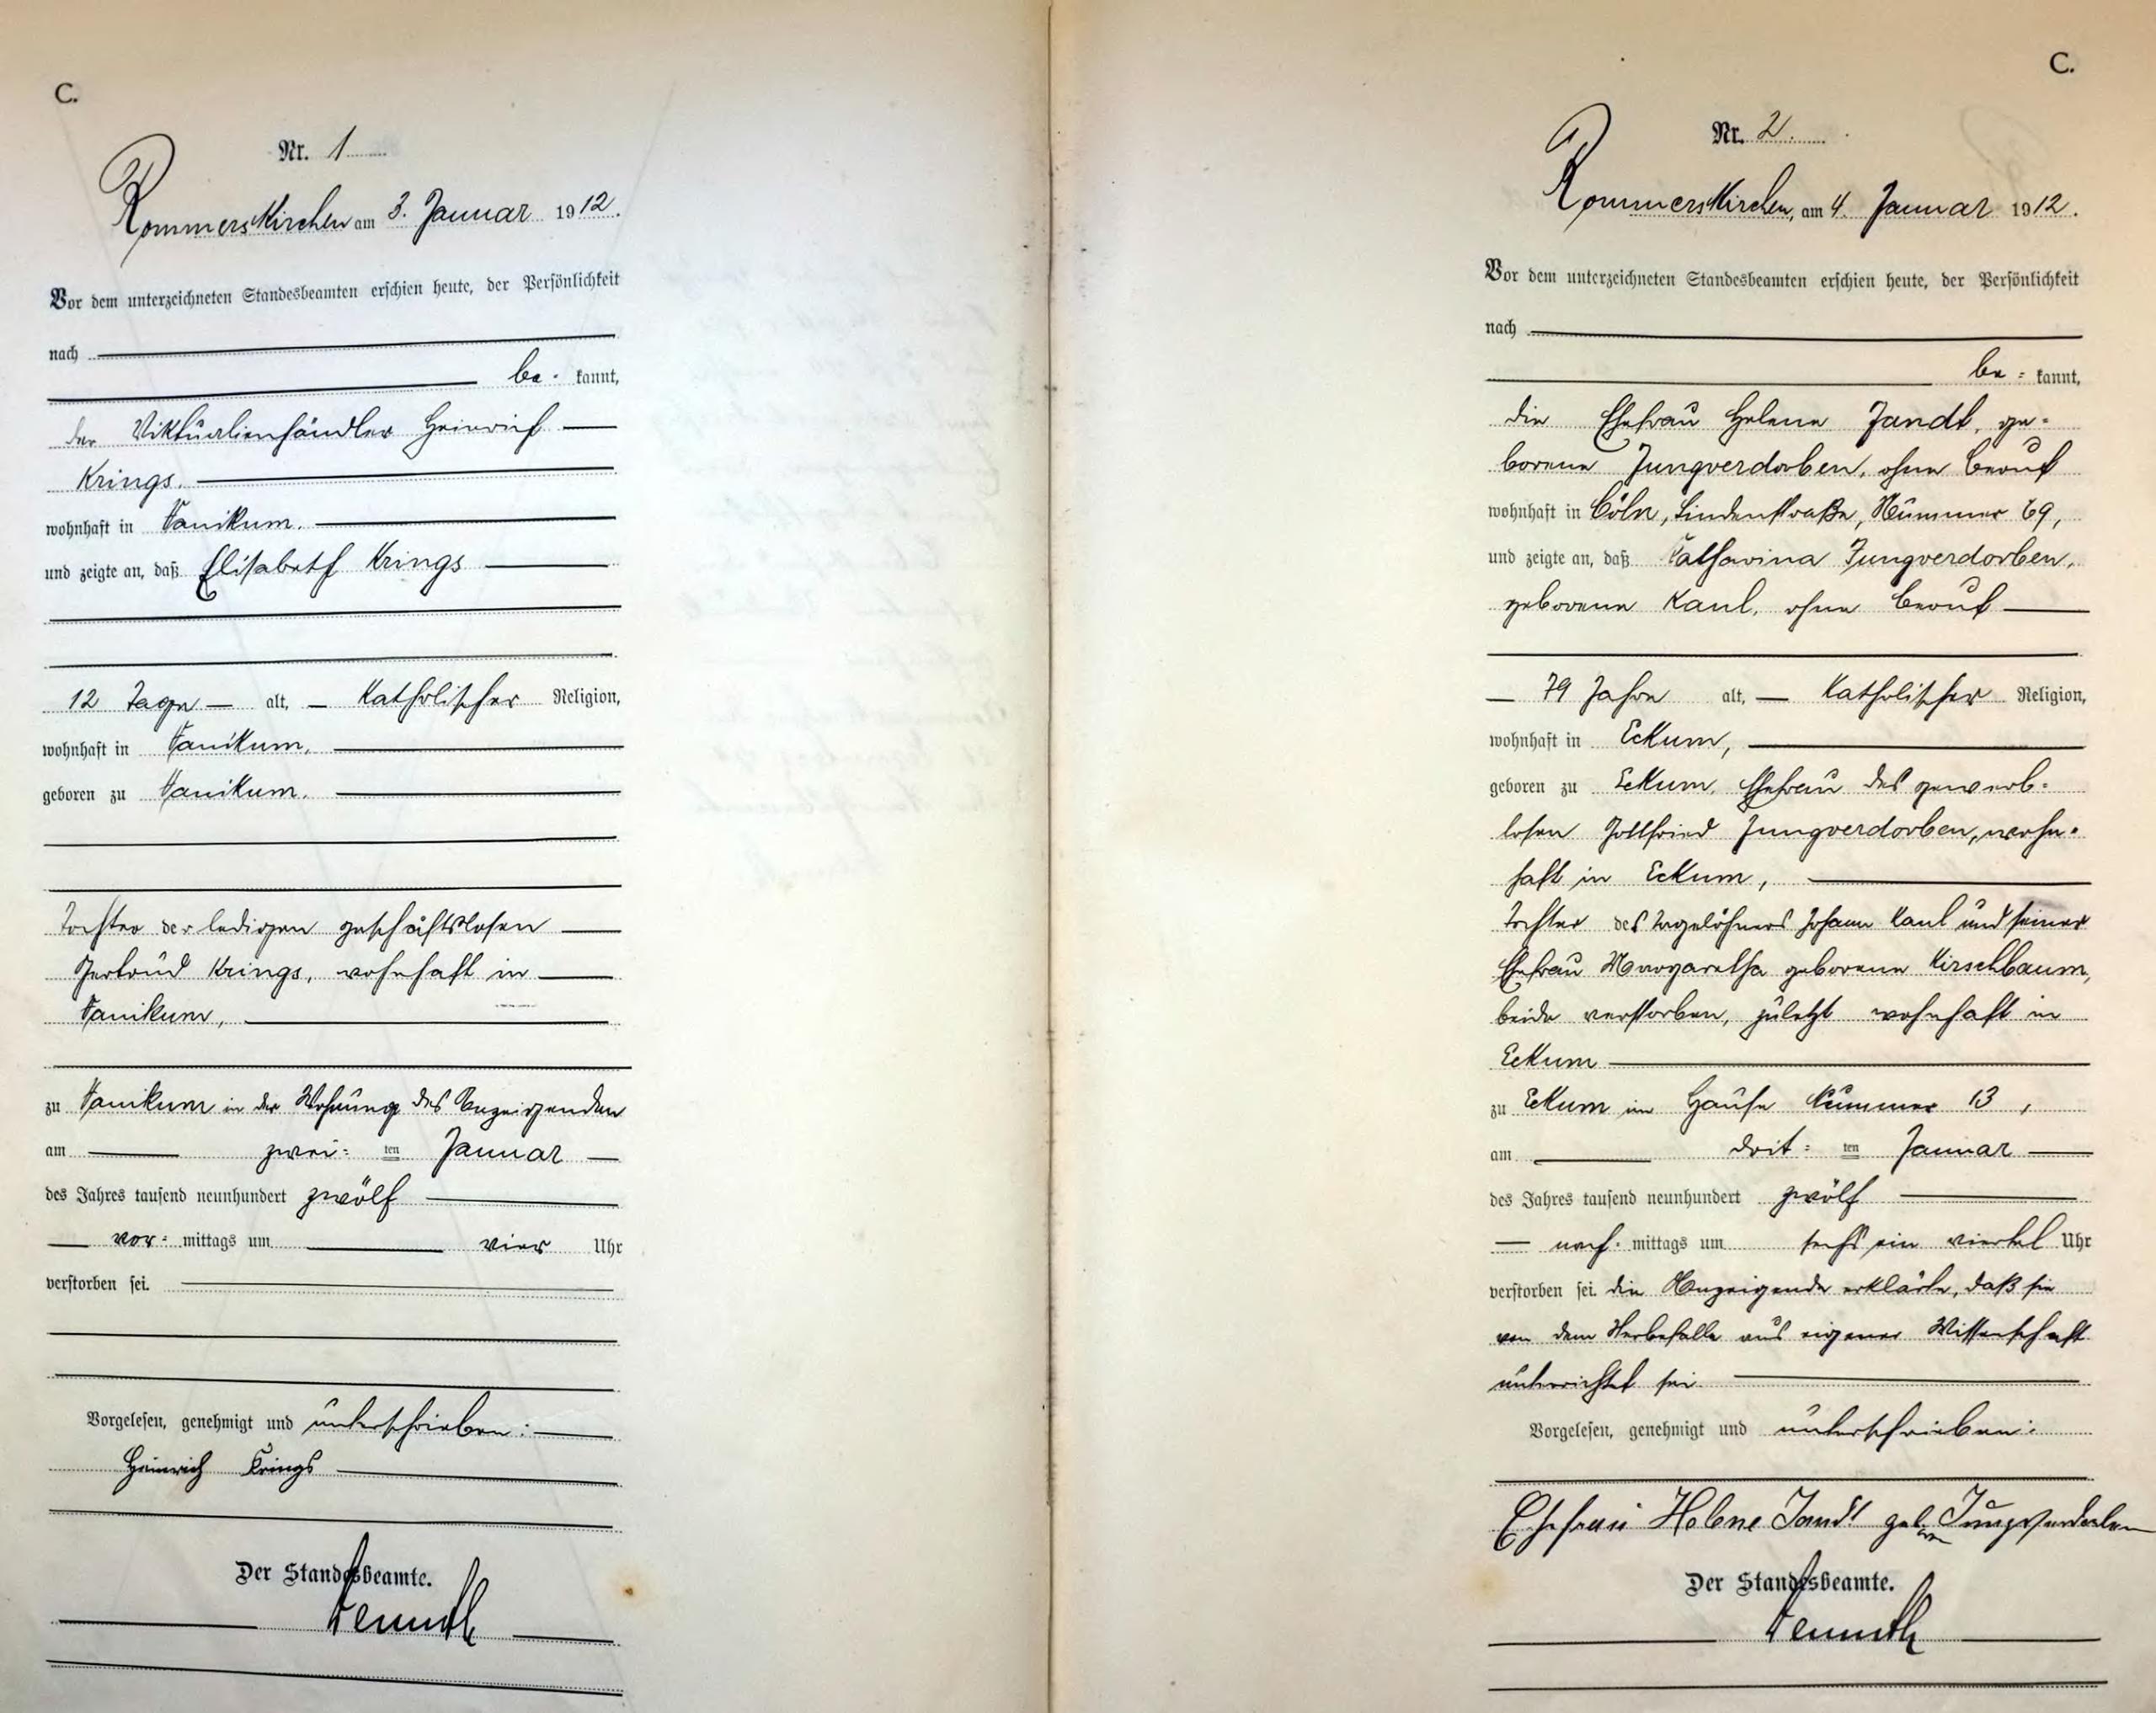 C.
Nr. 1
Rommerskirchen am 3. Januar 1912.
Vor dem unterzeichneten Standesbeamten erschien heute, der Persönlichkeit
nach
be- kannt,
der Viktualienhändler Heinrich
Krings.
wohnhaft in Vanikum.
und zeigte an, daß Elisabeth Krings
12 Tage alt, Katholischer Religion,
wohnhaft in Vanikum,
geboren zu Vanikum.
Tochter der ledigen geschäftslosen
Gertrud Krings, wohnhaft in
Vanikum,
zu Vanikum in der Wohnung des Anzeigenden
am zwei= ten Januar
des Jahres tausend neunhundert zwölf
vor= mittags um vier Uhr
verstorben sei.
Vorgelesen, genehmigt und unterschrieben:
Heinrich Krings
Der Standesbeamte.
C.
Nr. 2.
Rommerskirchen, am 4. Januar 1912.
Vor dem unterzeichneten Standesbeamten erschien heute, der Persönlichkeit
nach
be= kannt,
die Ehefrau Helene Jandt, ge=
borene Jungverdorben, ohne Beruf
wohnhaft in Cöln, Lindenstraße, Nummer 69,
und zeigte an, daß Katharina Jungverdorben,
geborene Kaul, ohne Beruf
79 Jahre alt, Katholischer Religion,
wohnhaft in Eckum,
geboren zu Eckum, Ehefrau des gewerb=
losen Gottfried Jungverdorben, wohn=
haft in Eckum,
Tochter des Tagelöhners Johann Kaul und seiner
Ehefrau Margaretha geborene Kirschbaum,
beide verstorben, zuletzt wohnhaft in
Eckum
zu Eckum im Hause Nummer 13,
am drit= ten Januar
des Jahres tausend neunhundert zwölf
nach= mittags um sechs ein viertel Uhr
verstorben sei. die Anzeigende erklärte, daß sie
von dem Sterbefalle aus eigener Wissenschaft
unterrichtet sei.
Vorgelesen, genehmigt und unterschrieben:
Ehefrau Helene Jandt geb. Jungverdorben
Der Standesbeamte.